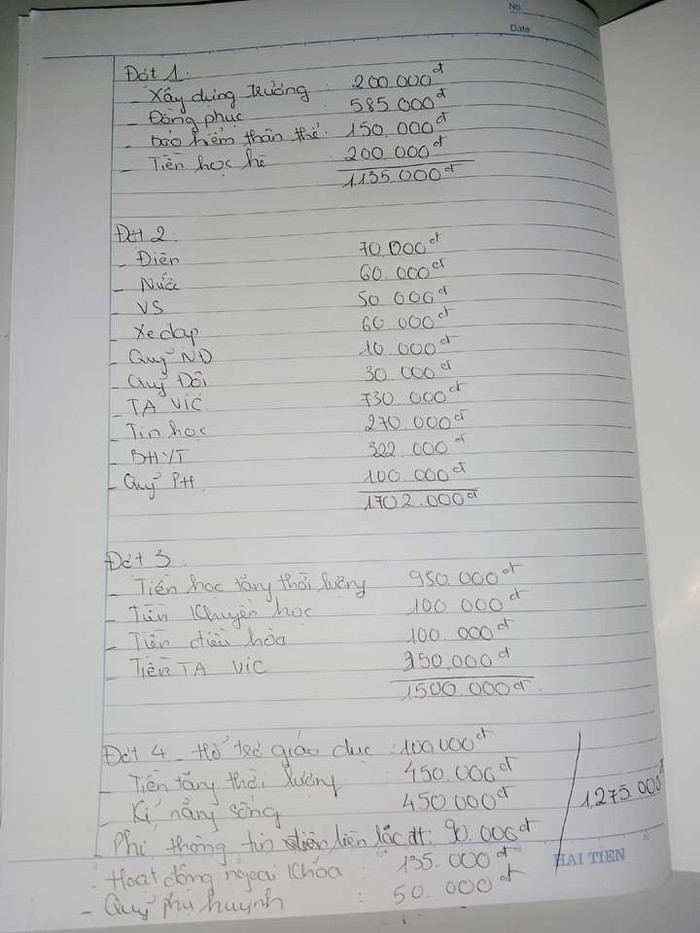 No.
Date
Đợt 1:
- Xây dựng trường : 200.000đ
- Đồng phục 585.000đ
- Bảo hiểm thân thể: 150.000đ
- Tiền học hè 200.000đ
1.135.000đ
Đợt 2:
- Điện 70.000đ
- Nước 60.000đ
- VS 50.000đ
- Xe đạp 60.000đ
- Quỹ NĐ 10.000đ
- Quỹ Đội 30.000đ
- TA VIC 730.000đ
- Tin học 270.000đ
- BHYT 322.000đ
- Quỹ PH 100.000đ
1702.000đ
Đợt 3
- Tiền học tăng thời lượng 950.000đ
- Tiền khuyến học 100.000đ
- Tiền điều hòa 100.000đ
- Tiền TA VIC 350.000đ
1500.000đ.
Đợt 4 - Hỗ trợ giáo dục : 100.000đ
- Tiền tăng thời lượng 450.000đ
- Kĩ năng sống 450.000đ
1.275.000đ
- Phí thông tin liên lạc đt: 90.000đ
- Hoạt động ngoại khóa : 135.000đ
HAI TIEN
- Quỹ phụ huynh : 50.000đ